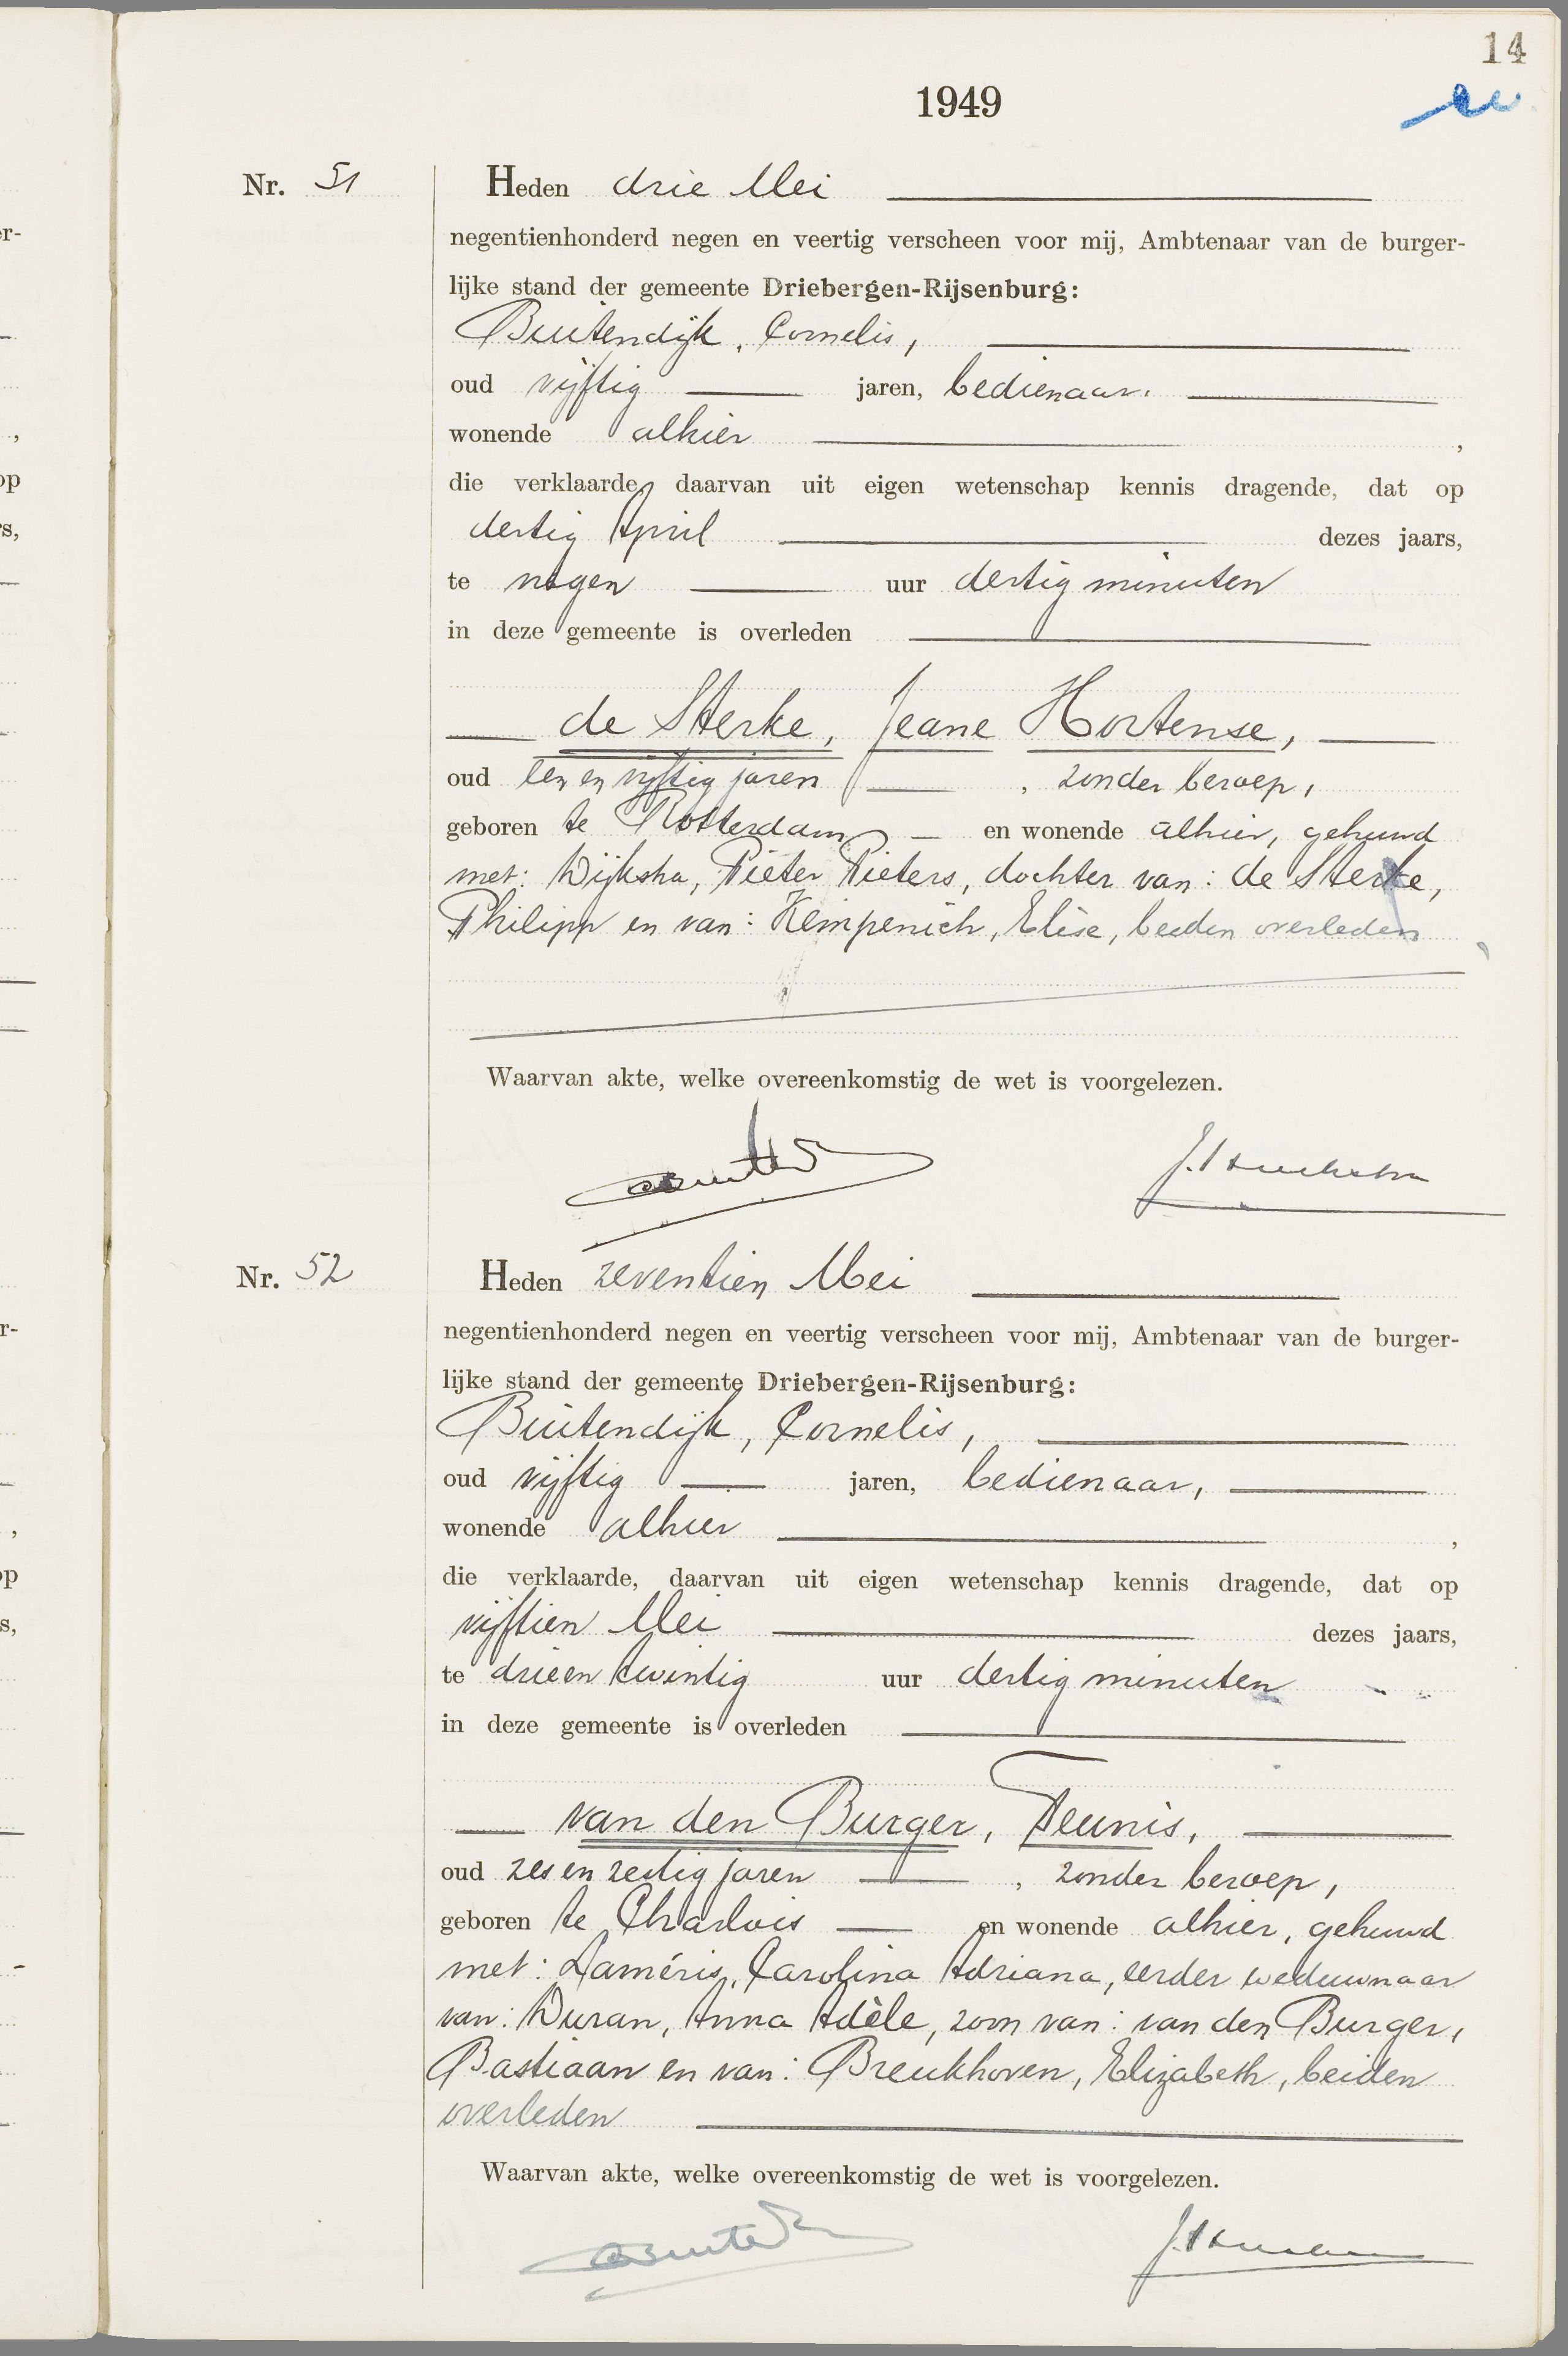 14
1949
Nr. 51
Heden drie Mei
negentienhonderd negen en veertig verscheen voor mij, Ambtenaar van de burger-
lijke stand der gemeente Driebergen-Rijsenburg:
Buitendijk, Cornelis,
oud vijftig jaren, bedienaar,
wonende alhier ,
die verklaarde, daarvan uit eigen wetenschap kennis dragende, dat op
dertig April dezes jaars,
te negen uur dertig minuten
in deze gemeente is overleden
de Sterke, Jeane Hortense,
oud een en vijftig jaren , zonder beroep,
geboren te Rotterdam en wonende alhier, gehuwd
met: Dijkstra, Pieter Pieters, dochter van: de Sterke,
Philipp en van: Kempenich, Elise, beiden overleden
Waarvan akte, welke overeenkomstig de wet is voorgelezen.
Nr. 52
Heden zeventien Mei
negentienhonderd negen en veertig verscheen voor mij, Ambtenaar van de burger-
lijke stand der gemeente Driebergen-Rijsenburg:
Buitendijk, Cornelis,
oud vijftig jaren, bedienaar,
wonende alhier ,
die verklaarde, daarvan uit eigen wetenschap kennis dragende, dat op
vijftien Mei dezes jaars,
te drieen twintig uur dertig minuten
in deze gemeente is overleden
van den Burger, Teunis,
oud zes en zestig jaren , zonder beroep,
geboren te Charlois en wonende alhier, gehuwd
met: Laméris, Carolina Adriana, eerder weduwnaar
van: Duran, Anna Adèle, zoon van: van den Burger,
Bastiaan en van: Breukhoven, Elizabeth, beiden
overleden
Waarvan akte, welke overeenkomstig de wet is voorgelezen.